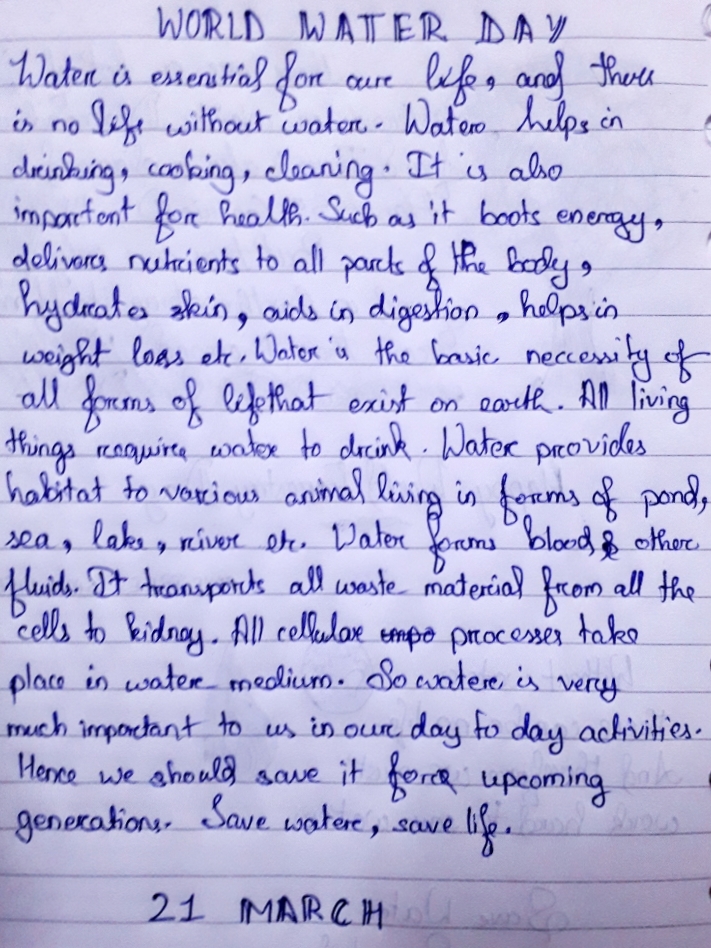 WORLD WATER DAY
Water is essential for our life, and there
is no life without water. Water helps in
drinking, cooking, cleaning. It is also
important for health. Such as it boots energy,
delivers nutrients to all parts of the body,
hydrates skin, aids in digestion, helps in
weight loss etc. Water is the basic neccessity of
all forms of life that exist on earth. All living
things require water to drink. Water provides
habitat to various animal living in forms of pond,
sea, lake, river etc. Water forms blood & other
fluids. It transports all waste material from all the
cells to kidney. All cellular processes take
place in water medium. So water is very
much important to us in our day to day activities.
Hence we should save it for upcoming
generations. Save water, save life.
21 MARCH